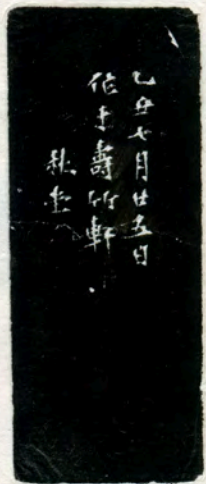 乙丑七月廿五日
作于壽竹軒
秋堂